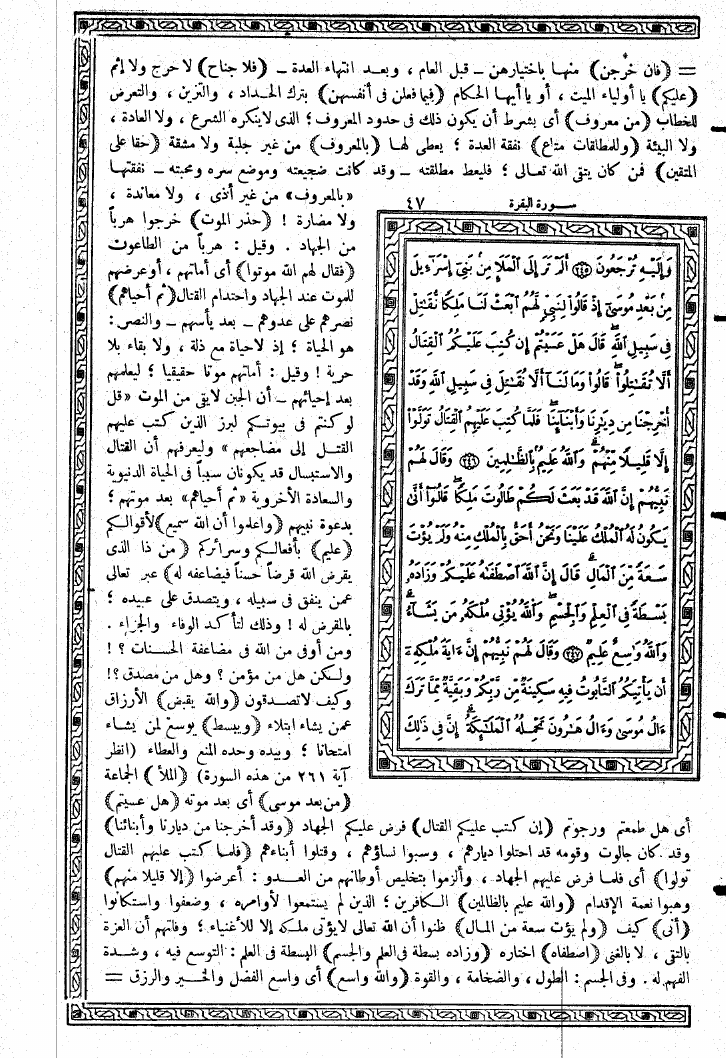 = (فان خرجن) منها باختيارهن – قبل العام ، وبعد انتهاء العدة – (فلا جناح) لا حرج ولا إثم
(عليكم) يا أولياء الميت ، أو يا أيها الحكام (فيما فعلن فى أنفسهن) بترك الحداد ، والتزين ، والتعرض
للخطاب (من معروف) أى بشرط أن يكون ذلك فى حدود المعروف ؛ الذى لا ينكره الشرع ، ولا العادة ،
ولا البيئة (وللمطلقات متاع) نفقة العدة ؛ يعطى لها (بالمعروف) من غير جلبة ولا مشقة (حقا على
المتقين) فمن كان يتقى الله تعالى ؛ فليعط مطلقته – وقد كانت ضجيعته وموضع سره ومحبته – نفقتها
«بالمعروف» من غير أذى ، ولا معاندة ،
ولا مضارة ! (حذر الموت) خرجوا هرباً
من الجهاد . وقيل : هرباً من الطاعوت
(فقال لهم الله موتوا) أى أماتهم ، أو عرضهم
للموت عند الجهاد واحتدام القتال (ثم أحياهم)
نصرهم على عدوهم – بعد يأسهم – والنصر :
هو الحياة ؛ إذ لا حياة مع ذلة ، ولا بقاء بلا
حرية ! وقيل : أماتهم موتا حقيقيا ؛ ليعلمهم
بعد إحيائهم – أن الجبن لا يقى من الموت «قل
لو كنتم فى بيوتكم لبرز الذين كتب عليهم
القتل إلى مضاجعهم» وليعرفهم أن القتال
والاستبسال قد يكونان سبباً فى الحياة الدنيوية
والسعادة الأخروية «ثم أحياهم» بعد موتهم ؛
بدعوة نبيهم (واعلموا أن الله سميع) لأقوالكم
(عليم) بأفعالكم وسرائركم (من ذا الذى
يقرض الله قرضاً حسناً فيضاعفه له) عبر تعالى
عمن ينفق فى سبيله ، ويتصدق على عبيده ؛
بالمقرض له ! وذلك لتأكد الوفاء والجزاء .
ومن أوفى من الله فى مضاعفة الحسنات ؟ !
ولكن هل من مؤمن ؟ وهل من مصدق ؟!
وكيف لا تصدقون (والله يقبض) الأرزاق
عمن يشاء ابتلاء (ويبسط) يوسع لمن يشاء
امتحانا ؛ وبيده وحده المنع والعطاء (انظر
آية ٢٦١ من هذه السورة) (الملأ) الجماعة
(من بعد موسى) أى بعد موته (هل عسيتم)
سورة البقرة ٤٧
وَإِلَيْهِ تُرْجَعُونَ ٢٤٥ أَلَمْ تَرَ إِلَى الْمَلَإِ مِنْ بَنِىٓ إِسْرَٰٓءِيلَ
مِنۢ بَعْدِ مُوسَىٰٓ إِذْ قَالُوا لِنَبِىٍّ لَّهُمُ ٱبْعَثْ لَنَا مَلِكًا نُّقَٰتِلْ
فِى سَبِيلِ ٱللَّهِ قَالَ هَلْ عَسَيْتُمْ إِن كُتِبَ عَلَيْكُمُ ٱلْقِتَالُ
أَلَّا تُقَٰتِلُوا قَالُوا وَمَا لَنَآ أَلَّا نُقَٰتِلَ فِى سَبِيلِ ٱللَّهِ وَقَدْ
أُخْرِجْنَا مِن دِيَٰرِنَا وَأَبْنَآئِنَا فَلَمَّا كُتِبَ عَلَيْهِمُ ٱلْقِتَالُ تَوَلَّوْا
إِلَّا قَلِيلًا مِّنْهُمْ وَٱللَّهُ عَلِيمٌۢ بِٱلظَّٰلِمِينَ ٢٤٦ وَقَالَ لَهُمْ
نَبِيُّهُمْ إِنَّ ٱللَّهَ قَدْ بَعَثَ لَكُمْ طَالُوتَ مَلِكًا قَالُوٓا أَنَّىٰ
يَكُونُ لَهُ ٱلْمُلْكُ عَلَيْنَا وَنَحْنُ أَحَقُّ بِٱلْمُلْكِ مِنْهُ وَلَمْ يُؤْتَ
سَعَةً مِّنَ ٱلْمَالِ قَالَ إِنَّ ٱللَّهَ ٱصْطَفَىٰهُ عَلَيْكُمْ وَزَادَهُۥ
بَسْطَةً فِى ٱلْعِلْمِ وَٱلْجِسْمِ وَٱللَّهُ يُؤْتِى مُلْكَهُۥ مَن يَشَآءُ
وَٱللَّهُ وَٰسِعٌ عَلِيمٌ ٢٤٧ وَقَالَ لَهُمْ نَبِيُّهُمْ إِنَّ ءَايَةَ مُلْكِهِۦٓ
أَن يَأْتِيَكُمُ ٱلتَّابُوتُ فِيهِ سَكِينَةٌ مِّن رَّبِّكُمْ وَبَقِيَّةٌ مِّمَّا تَرَكَ
ءَالُ مُوسَىٰ وَءَالُ هَٰرُونَ تَحْمِلُهُ ٱلْمَلَٰٓئِكَةُ إِنَّ فِى ذَٰلِكَ
أى هل طمعتم ورجوتم (إن كتب عليكم القتال) فرض عليكم الجهاد (وقد أخرجنا من ديارنا وأبنائنا)
وقد كان جالوت وقومه قد احتلوا ديارهم ، وسبوا نساؤهم ، وقتلوا أبناءهم (فلما كتب عليهم القتال
تولوا) أى فلما فرض عليهم الجهاد ، وألزموا بتخليص أوطانهم من العدو : أعرضوا (إلا قليلا منهم)
وهبوا نعمة الإقدام (والله عليم بالظالمين) الكافرين ؛ الذين لم يستمعوا لأوامره ، وضعفوا واستكانوا
(أنى) كيف (ولم يؤت سعة من المال) ظنوا أن الله تعالى لا يؤتى ملكه إلا للأغنياء ؛ وفاتهم أن العزة
بالتقى ، لا بالغنى (اصطفاه) اختاره (وزاده بسطة فى العلم والجسم) البسطة فى العلم : التوسع فيه ، وشدة
الفهم له . وفى الجسم : الطول ، والضخامة ، والقوة (والله واسع) أى واسع الفضل والخير والرزق =